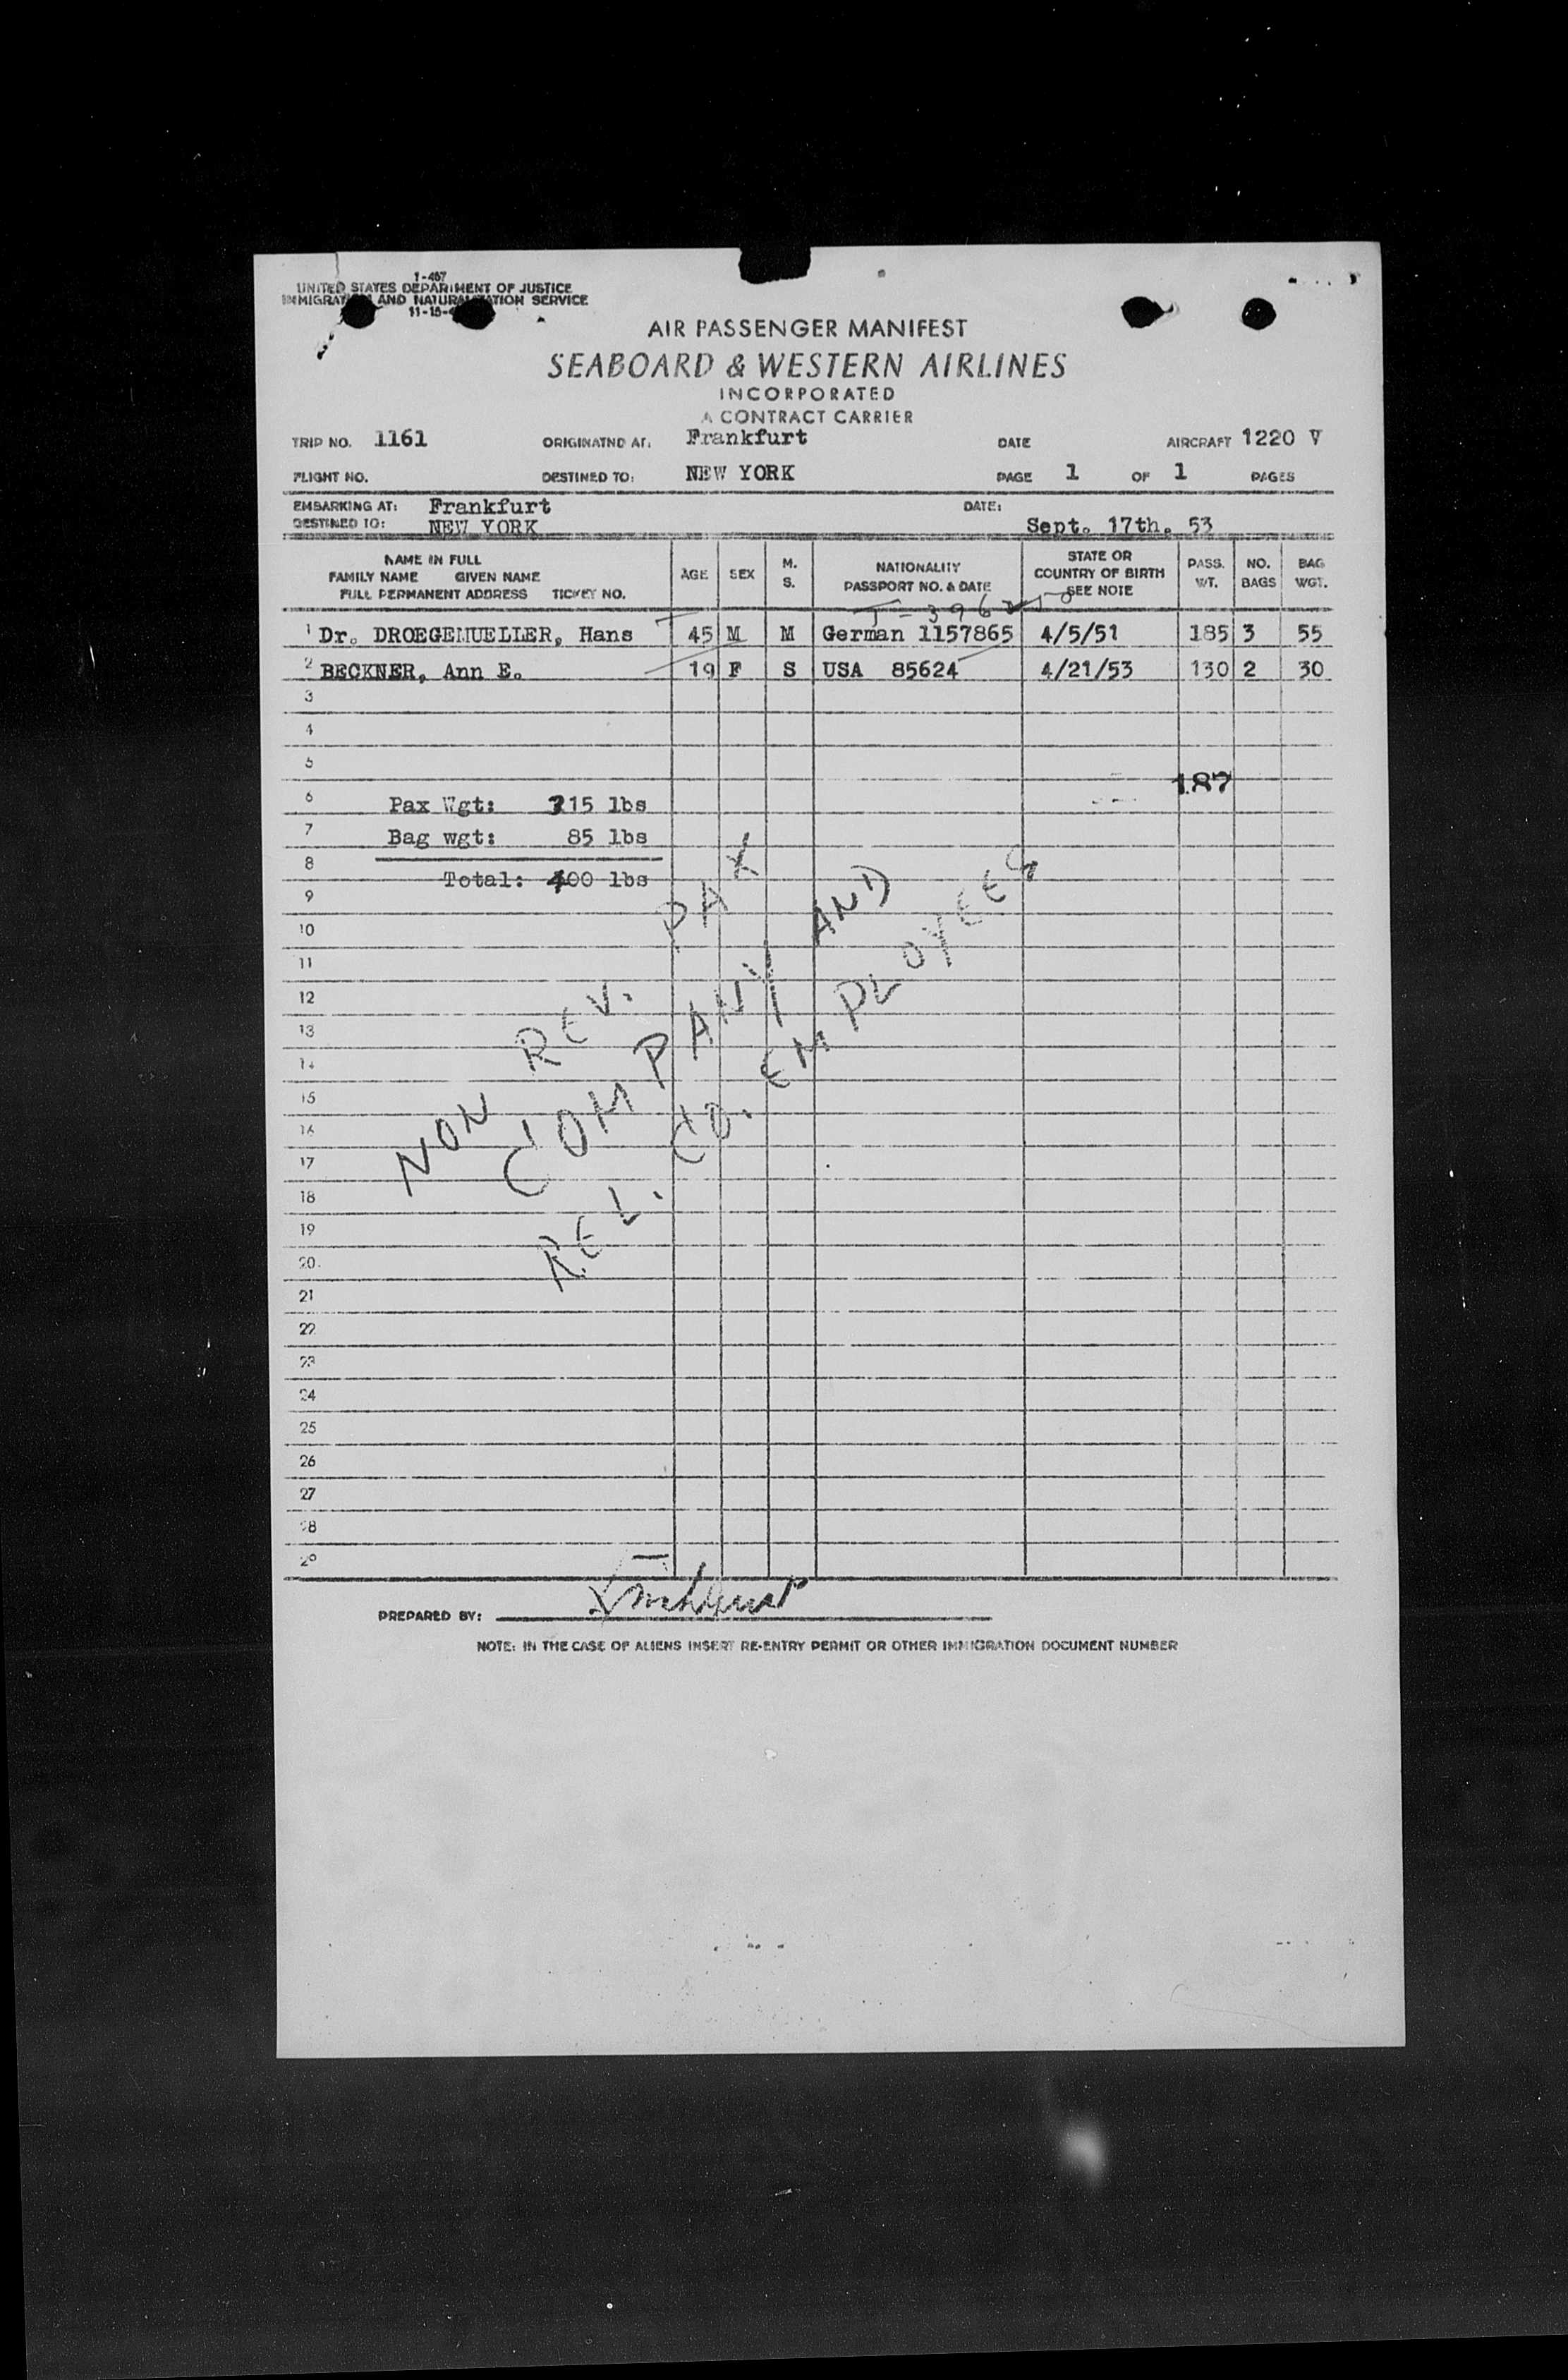 I-467
UNITED STATES DEPARTMENT OF JUSTICE
IMMIGRATION AND NATURALIZATION SERVICE
11-15-
AIR PASSENGER MANIFEST
SEABOARD & WESTERN AIRLINES
INCORPORATED
A CONTRACT CARRIER
TRIP NO. 1161 ORIGINATND AT: Frankfurt DATE AIRCRAFT 1220 V
FLIGHT NO. DESTINED TO: NEW YORK PAGE 1 OF 1 PAGES
EMBARKING AT: Frankfurt DATE:
DESTINED TO: NEW YORK Sept. 17th. 53
NAME IN FULL
FAMILY NAME GIVEN NAME
FULL PERMANENT ADDRESS TICKET NO.
AGE
SEX
M.
S.
NATIONALITY
PASSPORT NO. & DATE
STATE OR
COUNTRY OF BIRTH
SEE NOTE
PASS.
WT.
NO.
BAGS
BAG
WGT.
1 Dr. DROEGEMUELLER, Hans 45 M M German 1157865 4/5/51 185 3 55
2 BECKNER, Ann E. 19 F S USA 85624 4/21/53 130 2 30
3
4
5
187
6 Pax Wgt: 315 lbs
7 Bag wgt: 85 lbs
8
Total: 400 lbs
9
10
11
12
13
14
15
16
17
18
19
20
21
22
23
24
25
26
27
28
29
NON REV. PAX
COMPANY AND
REL. CO. EMPLOYEES
PREPARED BY:
NOTE: IN THE CASE OF ALIENS INSERT RE-ENTRY PERMIT OR OTHER IMMIGRATION DOCUMENT NUMBER